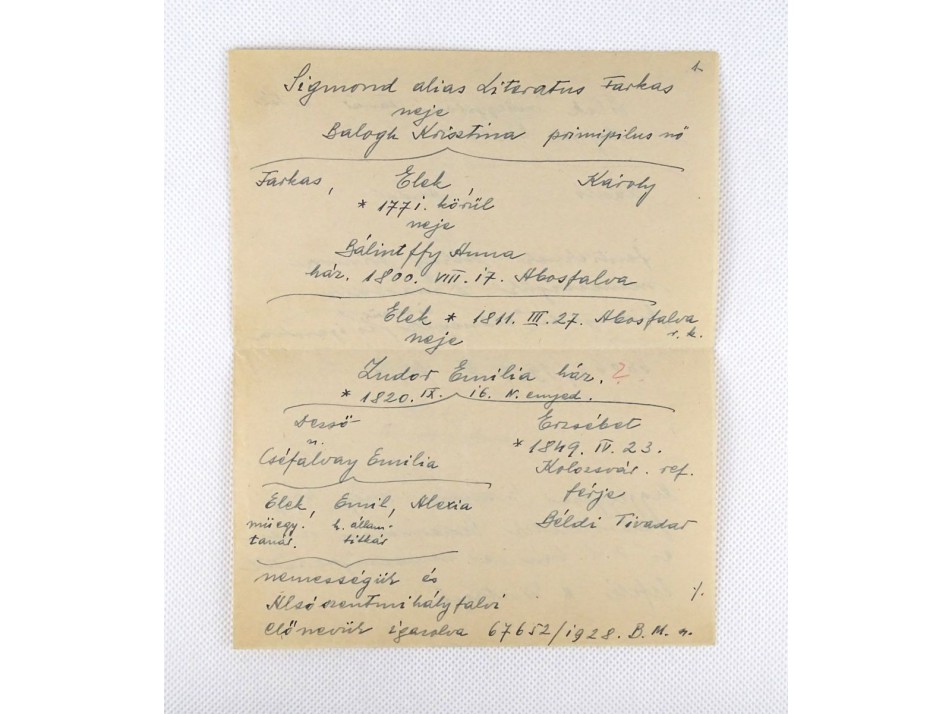 1.
Sigmond alias Literatus Farkas
neje
Balogh Krisztina primipilus nő
Farkas, Elek, Károly
* 1771. körül
neje
Bálintffy Anna
ház. 1800. VIII. 17. Abosfalva
Elek * 1811. III. 27. Abosfalva
r. k.
neje
Zudor Emilia ház. ?
* 1820. IX. 16. N. enyed.
Dezső
n.
Cséfalvay Emilia
Erzsébet
* 1849. IV. 23.
Kolozsvár. ref.
férje
Béldi Tivadar
Elek, Emil, Alexia
műegy. h. állam-
tanár. titkár
nemességük és
Alsószentmihályfalvi
előnevük igazolva 67652/1928. B. M. n.
./.